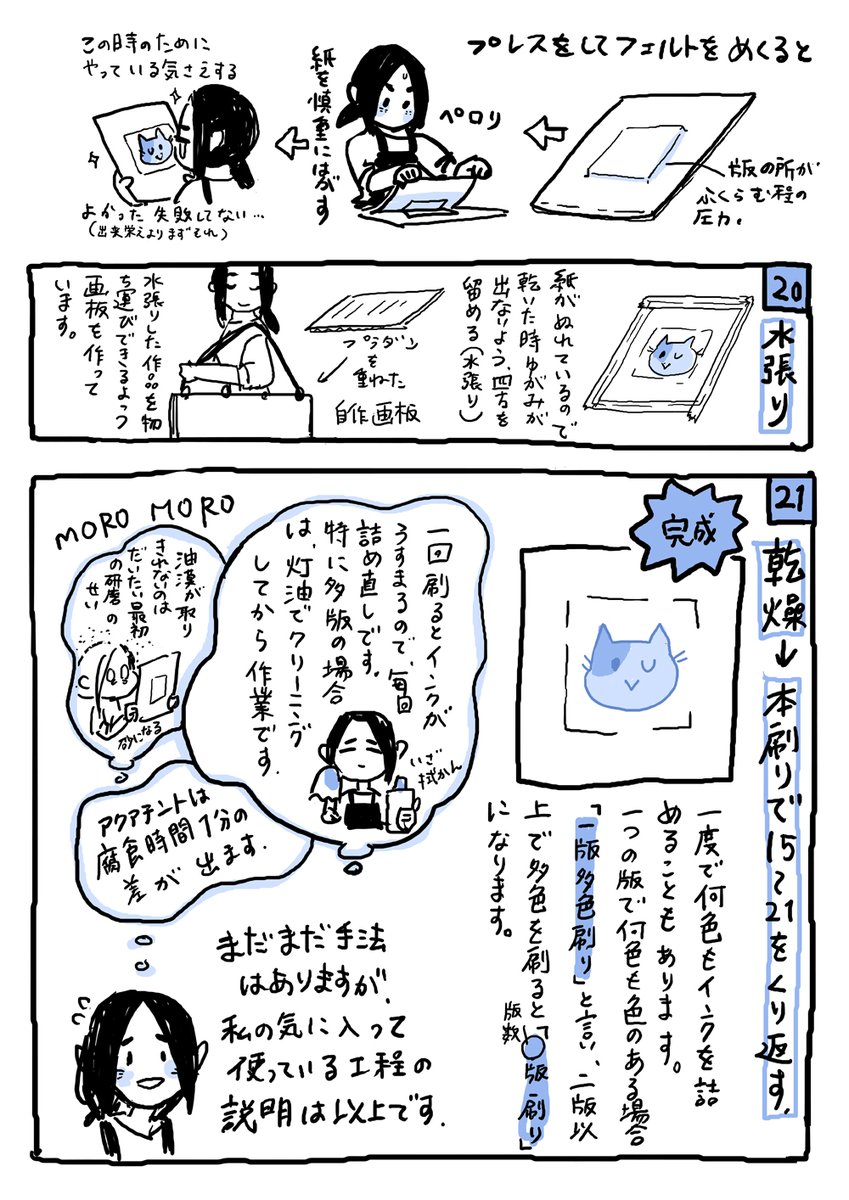 プレスをしてフェルトをめくると
版の所が
ふくらむ程の
圧力。
ペロリ
紙を慎重にはがす
この時のために
やっている気さえする
よかった失敗してない…
(出来栄えよりまずそれ)
20
水張り
紙がぬれているので
乾いた時ゆがみが
出ないよう、四方を
留める(水張り)
プラダン
を
重ねた
自作画板
水張りした作品を物
ち運びできるよっつ
画板を作って
います。
21
乾燥↓本刷りで15〜21をくり返す。
完成
一度で何色もインクを詰
めることもあります。
一つの版で何色も色のある場合
「一版多色刷り」と言い、二版以
上で多色を刷ると「〇版刷り」
になります。
版数
一回刷るとインクが
うすまるので、毎回
詰め直しです。
特に多版の場合
は、灯油でクリーニング
してから作業です。
いざ
拭かん
MORO MORO
油漠が取り
きれないのは
だいたい最初
の研磨の
せい
砂になる
アクアチントは
腐食時間1分の
差が出ます。
まだまだ手法
はありますが、
私の気に入って
使っている工程の
説明は以上です。